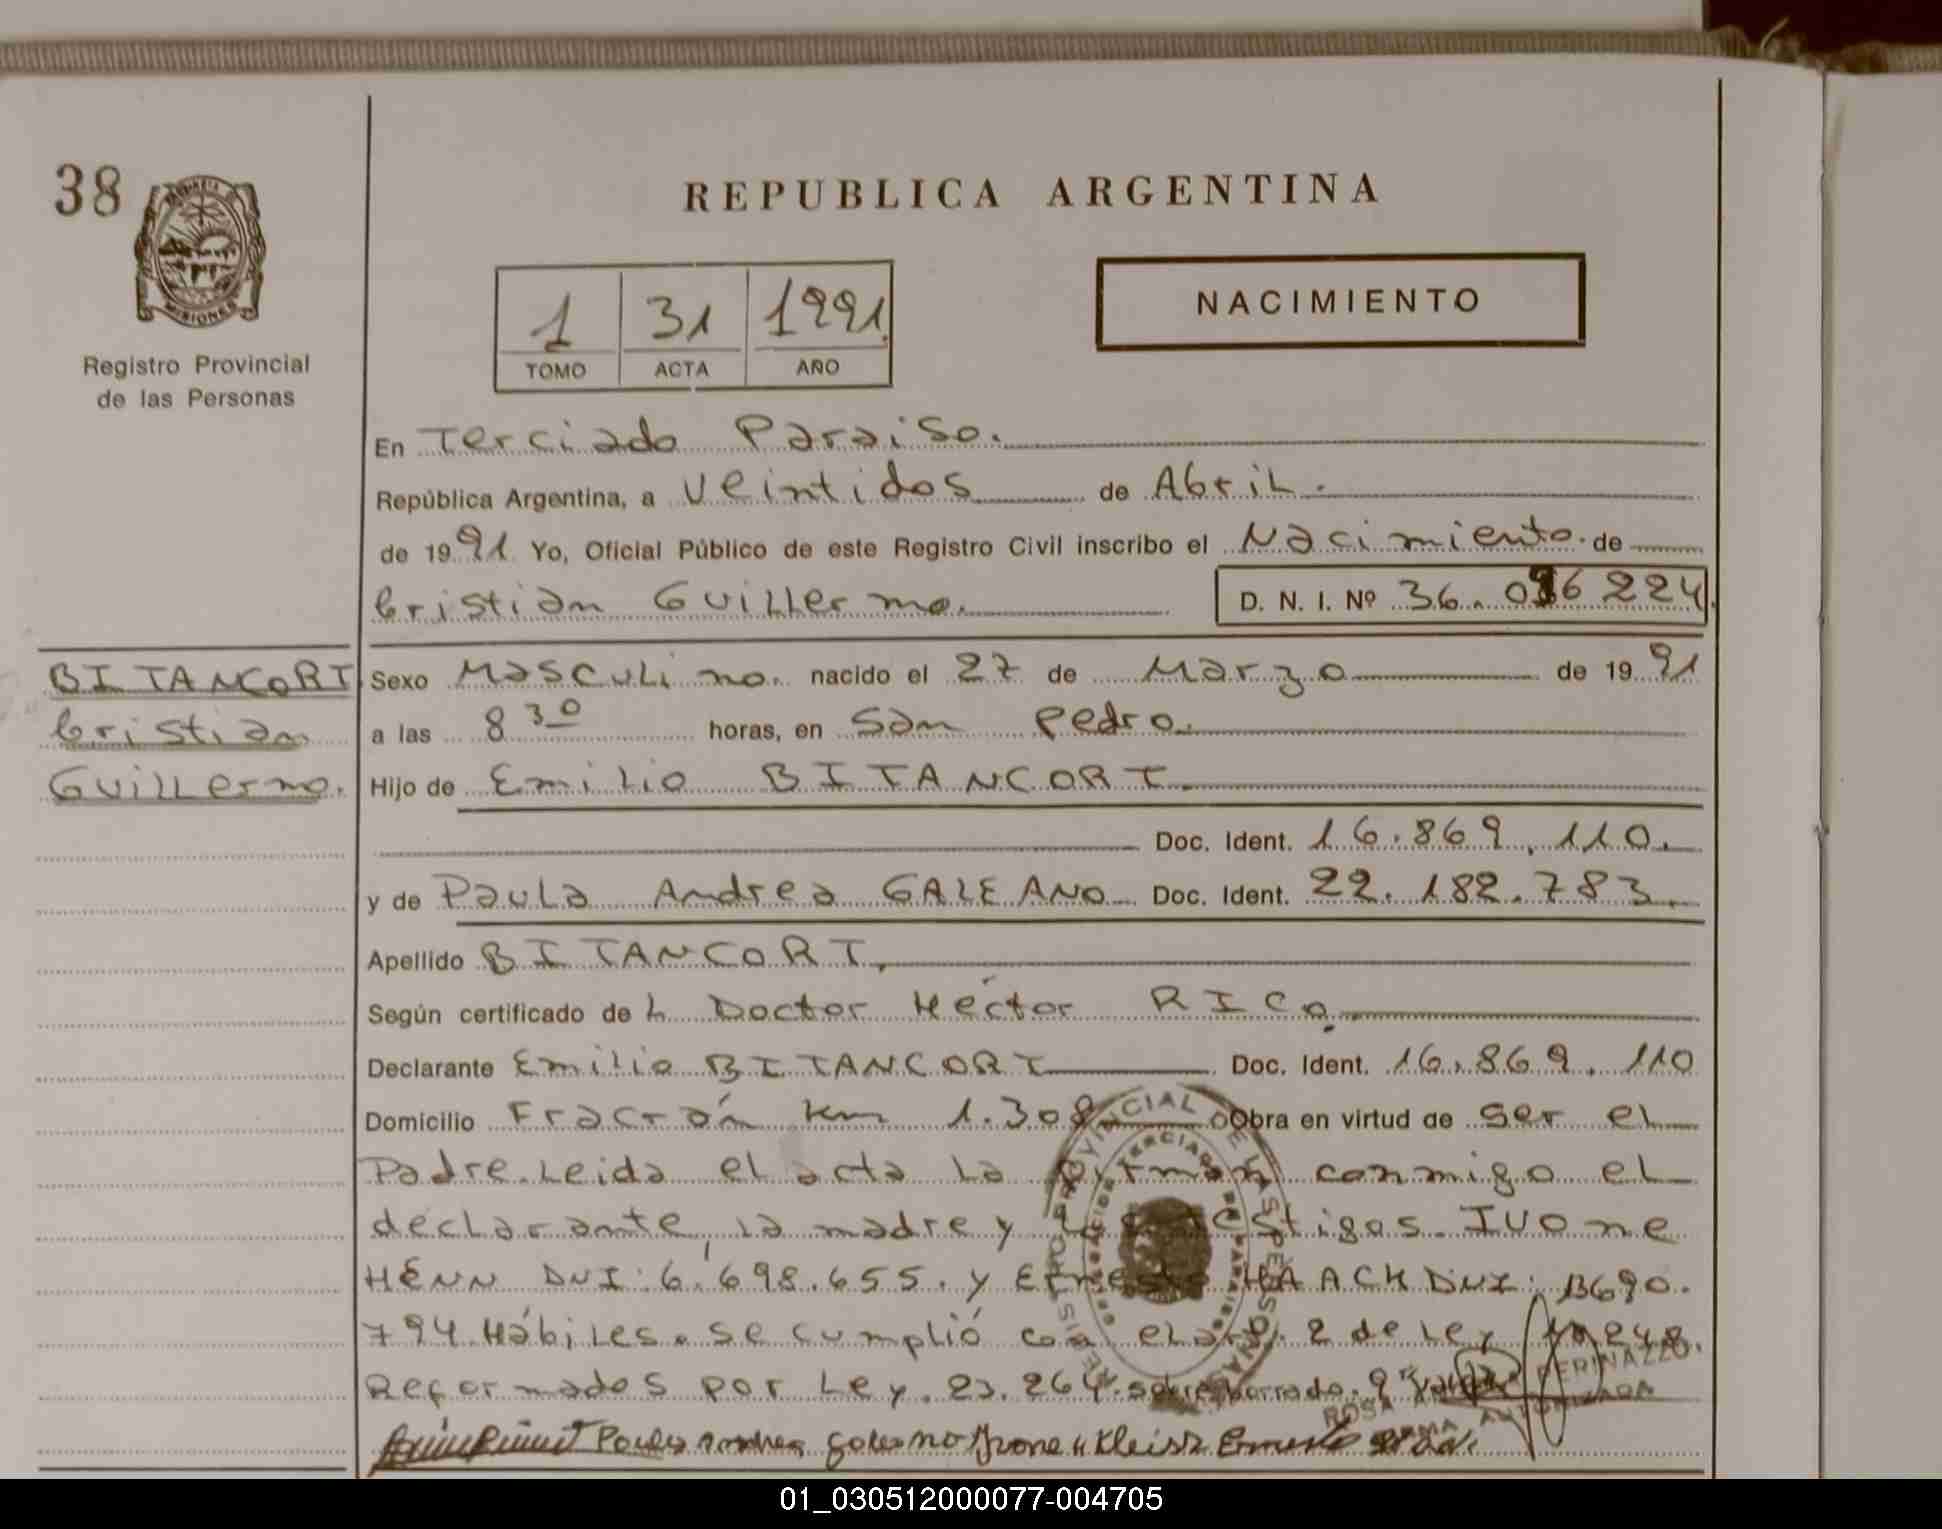 38
MISIONES
Registro Provincial
de las Personas
REPUBLICA ARGENTINA
1 31 1991
TOMO ACTA AÑO
NACIMIENTO
En Terciado Paraiso.
República Argentina, a Veintidos de Abril.
de 1991 Yo, Oficial Público de este Registro Civil inscribo el Nacimiento de
Cristian Guillermo. D. N. I. Nº 36.096 224
BITANCORT
Cristian
Guillermo.
Sexo Masculino. nacido el 27 de Marzo de 1991
a las 8 30 horas, en San Pedro.
Hijo de Emilio BITANCORT.
Doc. Ident. 16.869.110.
y de Paula Andrea GALEANO Doc. Ident. 22.182.783.
Apellido BITANCORT.
Según certificado de L Doctor Héctor RICO.
Declarante Emilio BITANCORT Doc. Ident. 16.869.110
Domicilio Fracrán Km 1.308 Obra en virtud de ser el
Padre. Leida el acta la firman conmigo el
declarante, la madre y los testigos. IVOne
HENN DNI: 6.698.655. y Ernesto HAACK DNI: 13690.
794 Hábiles. se cumplió con el art. 2 de Ley 18248.
Reformados por Ley. 23.264. sobreborrado. 9
Paula Andrea Galeano Ivone H Kleist Ernesto
REGISTRO PROVINCIAL DE LAS PERSONAS
DELEGACION TERCIADO PARAISO
ROSA PERINAZZO
FIRMA AUTORIZADA
01_030512000077-004705